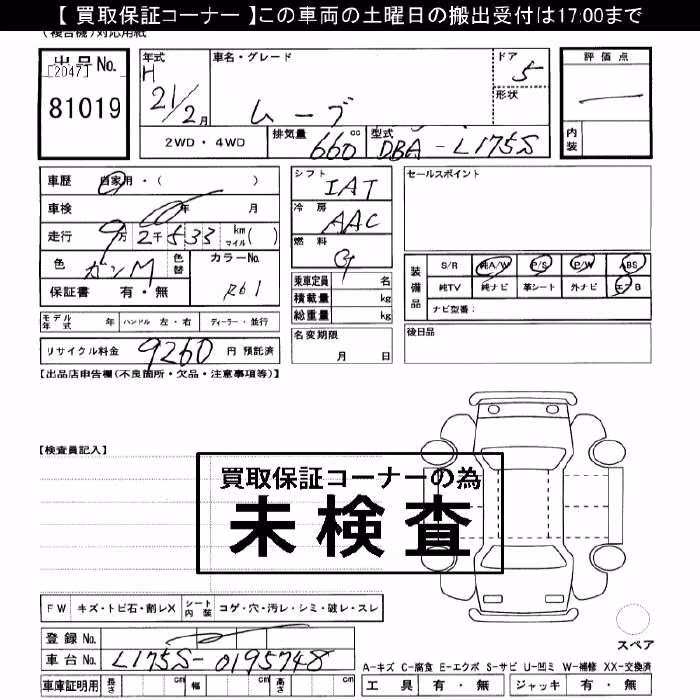 【 買取保証コーナー 】この車両の土曜日の搬出受付は17:00まで
(複合機)対応用紙
出品No.
[2047]
81019
年式
H
21/2月
車名・グレード
ムーブ
ドア
5
形状
評価点
内装
2WD・4WD
排気量
660
cc
型式
DBA-L175S
車歴
自家用・( )
車検
年 月
走行
9万2千533
km
マイル
( )
色
ガンM
色替
カラーNo.
R61
保証書
有・無
シフト
IAT
冷房
AAC
燃料
G
乗車定員
名
積載量
kg
総重量
kg
セールスポイント
装備品
S/R 純A/W P/S P/W ABS
純TV 純ナビ 革シート 外ナビ エアB
ナビ型番:
モデル年式
年
ハンドル 左・右
ディーラー・並行
名変期限
月 日
後日品
リサイクル料金
9260
円 預託済
【出品店申告欄(不良箇所・欠品・注意事項等)】
【検査員記入】
買取保証コーナーの為
未検査
FW
キズ・トビ石・割レX
シート内装
コゲ・穴・汚レ・シミ・破レ・スレ
登録No.
車台No.
L175S-0195748
スペア
A-キズ C-腐食 E-エクボ S-サビ U-凹ミ W-補修 XX-交換済
車庫証明用
長さ
cm
幅
cm
高さ
cm
工具
有・無
ジャッキ
有・無